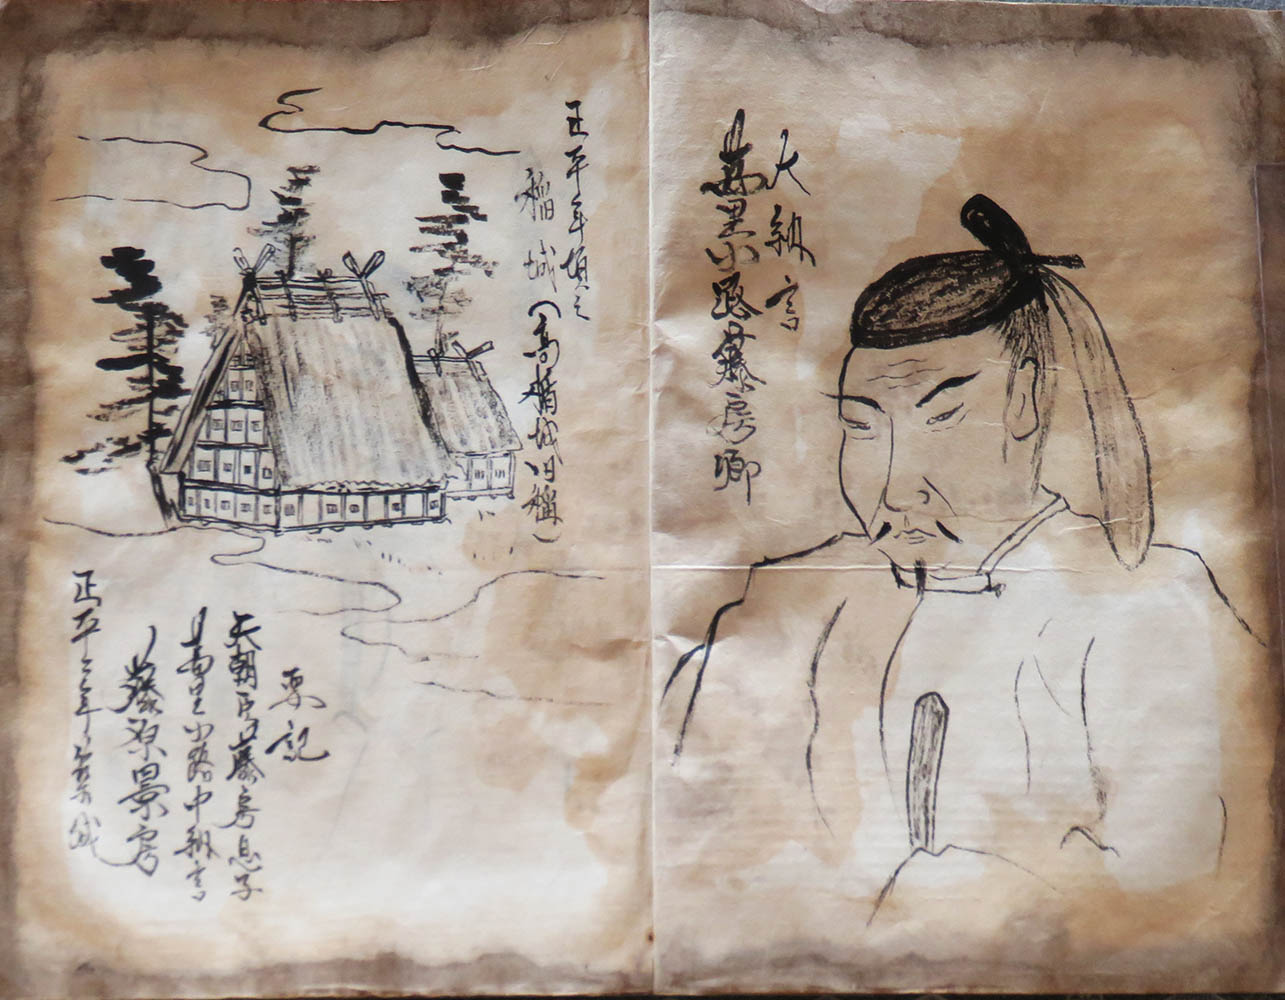 大納言
萬里小路藤房卿
正平年頃之
稲城(高楯城旧稱)
栗記
天朝臣藤房息子
萬里小路中納言
藤原景房
正平二二年